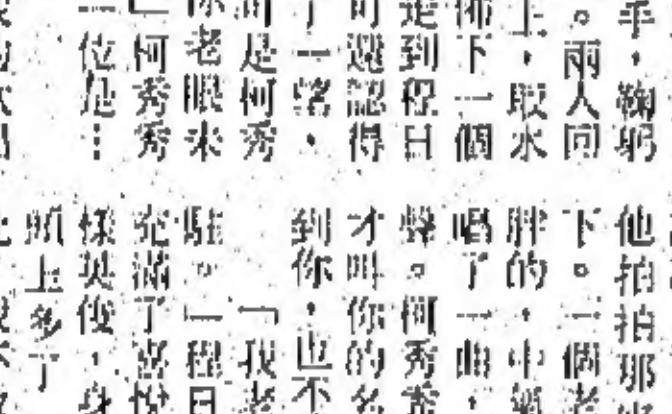 手，鞠躬
。兩人同
上，取水
佈下一個
走到程日
可還認得
了一望，
是何秀
你老眼未
」何秀秀
一位是…
他拍拍那
下。一個老
胖的，中
唱了一曲，
聲。何秀秀
才叫你的名
到你，也不
「我老
駐。」程日
充滿了喜悅
樣英俊，身
上多了